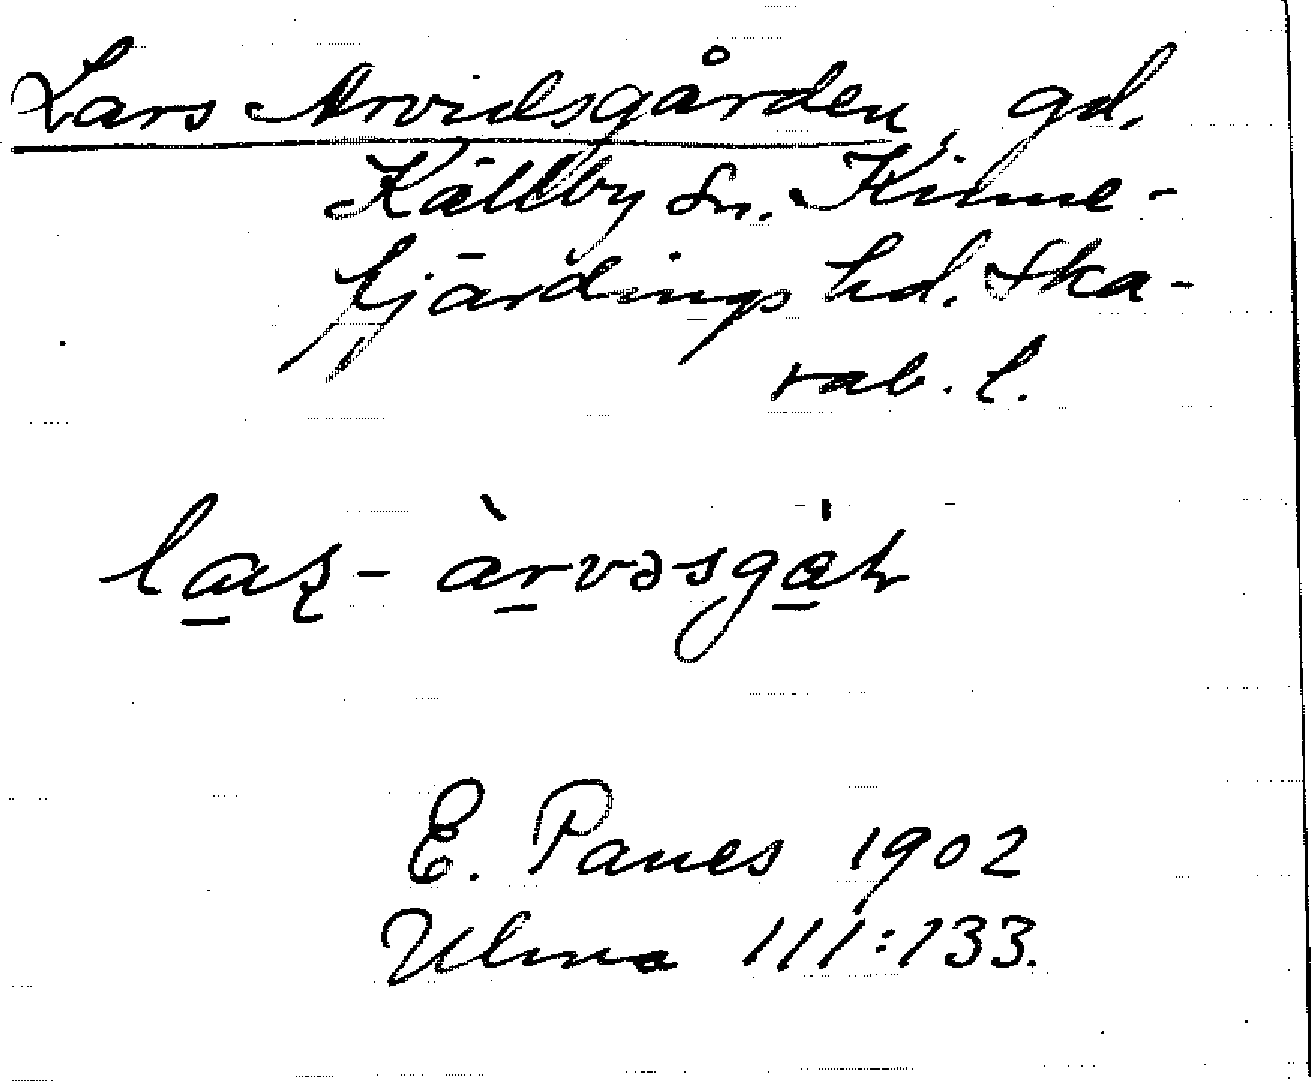 Lars Arvidsgården, gd.
Källby sn. Kinne-
fjärdings hd. Ska-
rab. l.
E. Panes 1902
Ulma 111:133.